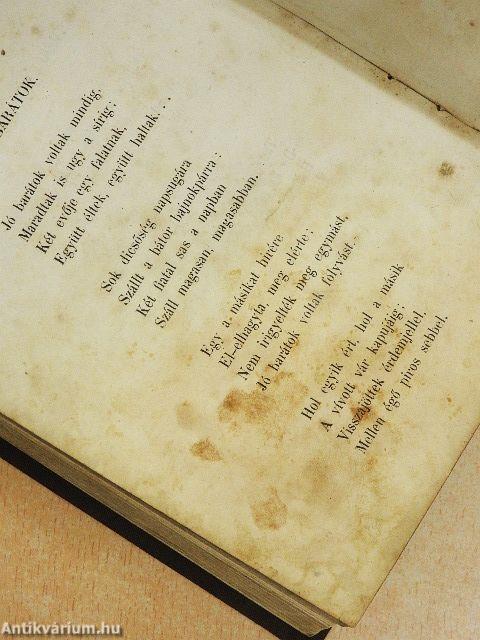 BARÁTOK.
Jó barátok voltak mindig,
Maradtak is ugy a sirig;
Két evője egy falatnak,
Együtt éltek, együtt haltak...
Sok dicsőség napsugára
Szállt a bátor bajnokpárra;
Két fiatal sas a napban
Száll magasan, magasabban.
Egy a másikat hirére
El-elhagyta, meg elérte;
Nem irigyelték meg egymást,
Jó barátok voltak folyvást.
Hol egyik ért, hol a másik
A vívott vár kapujáig;
Visszajöttek érdemjellel,
Mellen égő piros sebbel.
Antikvárium.hu